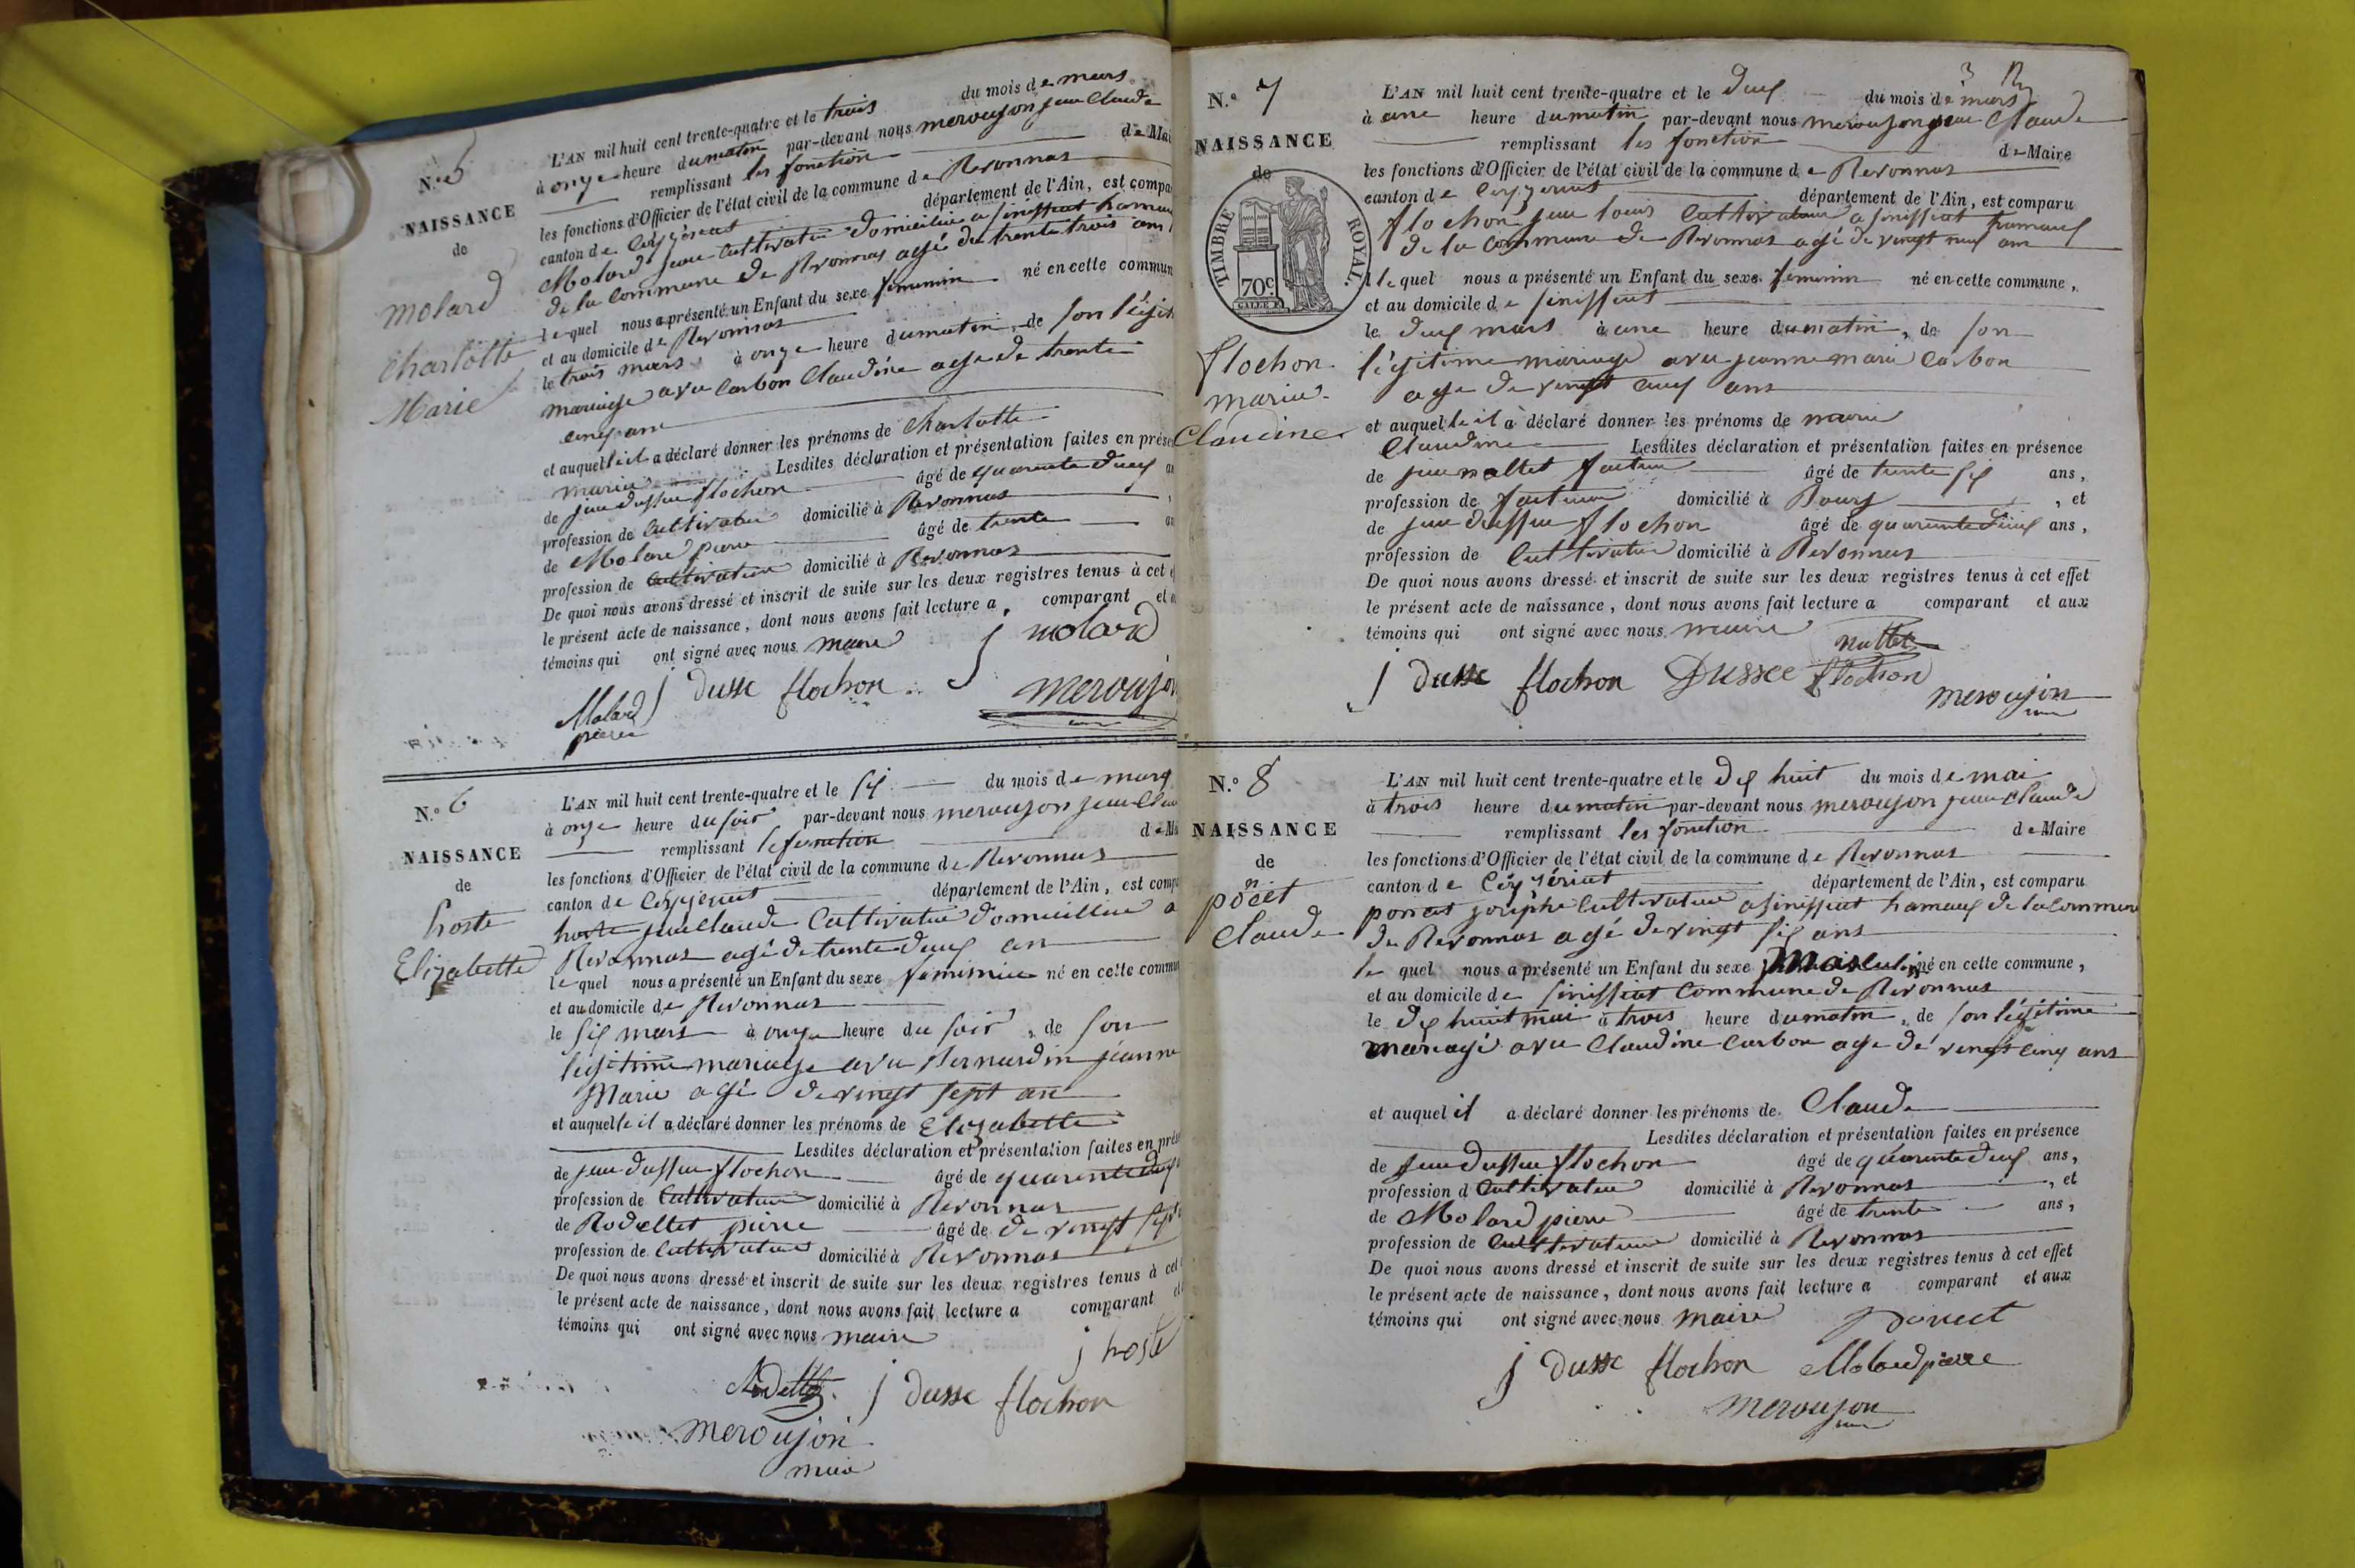 N.° 5
NAISSANCE
de
Molard
Charlotte
Marie
L'AN mil huit cent trente-quatre et le trois du mois de mars
à onze heure du matin par-devant nous meroujon jean Claude
remplissant les fonction de Mai
les fonctions d'Officier de l'état civil de la commune de Revonnas
canton de Ceyzeriat département de l'Ain, est compa
Molard jean Cultivateur domicilié a sinissiat hamau
de la Commune de Revonnas agé de trente trois ans
lequel nous a présenté un Enfant du sexe feminin né en cette commun
et au domicile de Revonnas
le trois mars à onze heure du matin, de son légit
mariage avec Carbon Claudine agé de trente
cinq an
et auquelle il a déclaré donner les prénoms de Charlotte
marie Lesdites déclaration et présentation faites en prése
de jean dussue flochon âgé de quarente deux an
profession de Cultivateur domicilié à Revonnas
de Molard pierre âgé de trente an
profession de Cultivateur domicilié à Revonnas
De quoi nous avons dressé et inscrit de suite sur les deux registres tenus à cet e
le présent acte de naissance, dont nous avons fait lecture a comparant et a
témoins qui ont signé avec nous maire j molard
j dusse flochon meroujon
Molard
pierre
N.° 6
NAISSANCE
de
hoste
Elizabette
L'AN mil huit cent trente-quatre et le six du mois de mars
à onze heure du soir par-devant nous meroujon jean Clau
remplissant le fonction de Ma
les fonctions d'Officier de l'état civil de la commune de Revonnas
canton de Ceyzeriat département de l'Ain, est compa
hoste jean Claude Cultivateur domicillié a
Revonnas agé de trente deux an
lequel nous a présenté un Enfant du sexe feminin né en cette commu
et au domicile de Revonnas
le six mars à onze heure du soir, de son
legitime mariage avec Bernardin jeanne
Marie agé de vingt sept an
et auquelle il a déclaré donner les prénoms de Elizabette
Lesdites déclaration et présentation faites en prése
de jean dussue flochon âgé de quarente deux
profession de Cultivateur domicilié à Revonnas
de Rodellet pierre âgé de de vingt sept
profession de Cultivateur domicilié à Revonnas
De quoi nous avons dressé et inscrit de suite sur les deux registres tenus à cet
le présent acte de naissance, dont nous avons fait lecture a comparant et
témoins qui ont signé avec nous maire
j hoste
j dusse flochon
meroujon
maire
N.° 7
NAISSANCE
de
TIMBRE ROYAL.
70c
flochon
marie
Claudine
L'AN mil huit cent trente-quatre et le deux du mois de mars
à une heure du matin par-devant nous meroujon jean Claude
remplissant les fonction de Maire
les fonctions d'Officier de l'état civil de la commune de Revonnas
canton de Ceyzeriat département de l'Ain, est comparu
flochon jean louis Cultivateur a sinissiat hameaux
de la Commune de Revonnas agé de vingt neuf an
lequel nous a présenté un Enfant du sexe feminin né en cette commune,
et au domicile de sinissiat
le deux mars à une heure du matin, de son
légitime mariage avec jeanne marie Carbon
age de vingt cinq ans
et auquelle il a déclaré donner les prénoms de marie
Claudine Lesdites déclaration et présentation faites en présence
de jean mallet facteur âgé de trente six ans,
profession de facteur domicilié à Bourg, et
de jean dussue flochon âgé de quarente deux ans,
profession de Cultivateur domicilié à Revonnas
De quoi nous avons dressé et inscrit de suite sur les deux registres tenus à cet effet
le présent acte de naissance, dont nous avons fait lecture a comparant et aux
témoins qui ont signé avec nous maire
j dusse flochon Dussee flochon
meroujon
N.° 8
NAISSANCE
de
poncet
Claude
L'AN mil huit cent trente-quatre et le dix huit du mois de mai
à trois heure du matin par-devant nous meroujon jean Claude
remplissant les fonction de Maire
les fonctions d'Officier de l'état civil de la commune de Revonnas
canton de Ceyzériat département de l'Ain, est comparu
poncet josephe Cultivateur a sinissiat hamaux de la Commune
de Revonnas agé de vingt six ans
le quel nous a présenté un Enfant du sexe Masculin né en cette commune,
et au domicile de sinissiat Commune de Revonnas
le dix huit mai à trois heure du matin, de son légitime
mariagé avec Claudine Carbon age de vingt cinq ans
et auquel il a déclaré donner les prénoms de Claude
Lesdites déclaration et présentation faites en présence
de jean dussue flochon âgé de quarente deux ans,
profession d Cultivateur domicilié à Revonnas, et
de Molard pierre âgé de trente ans,
profession de Cultivateur domicilié à Revonnas
De quoi nous avons dressé et inscrit de suite sur les deux registres tenus à cet effet
le présent acte de naissance, dont nous avons fait lecture a comparant et aux
témoins qui ont signé avec nous maire poncet
j dusse flochon Molard pierre
meroujon